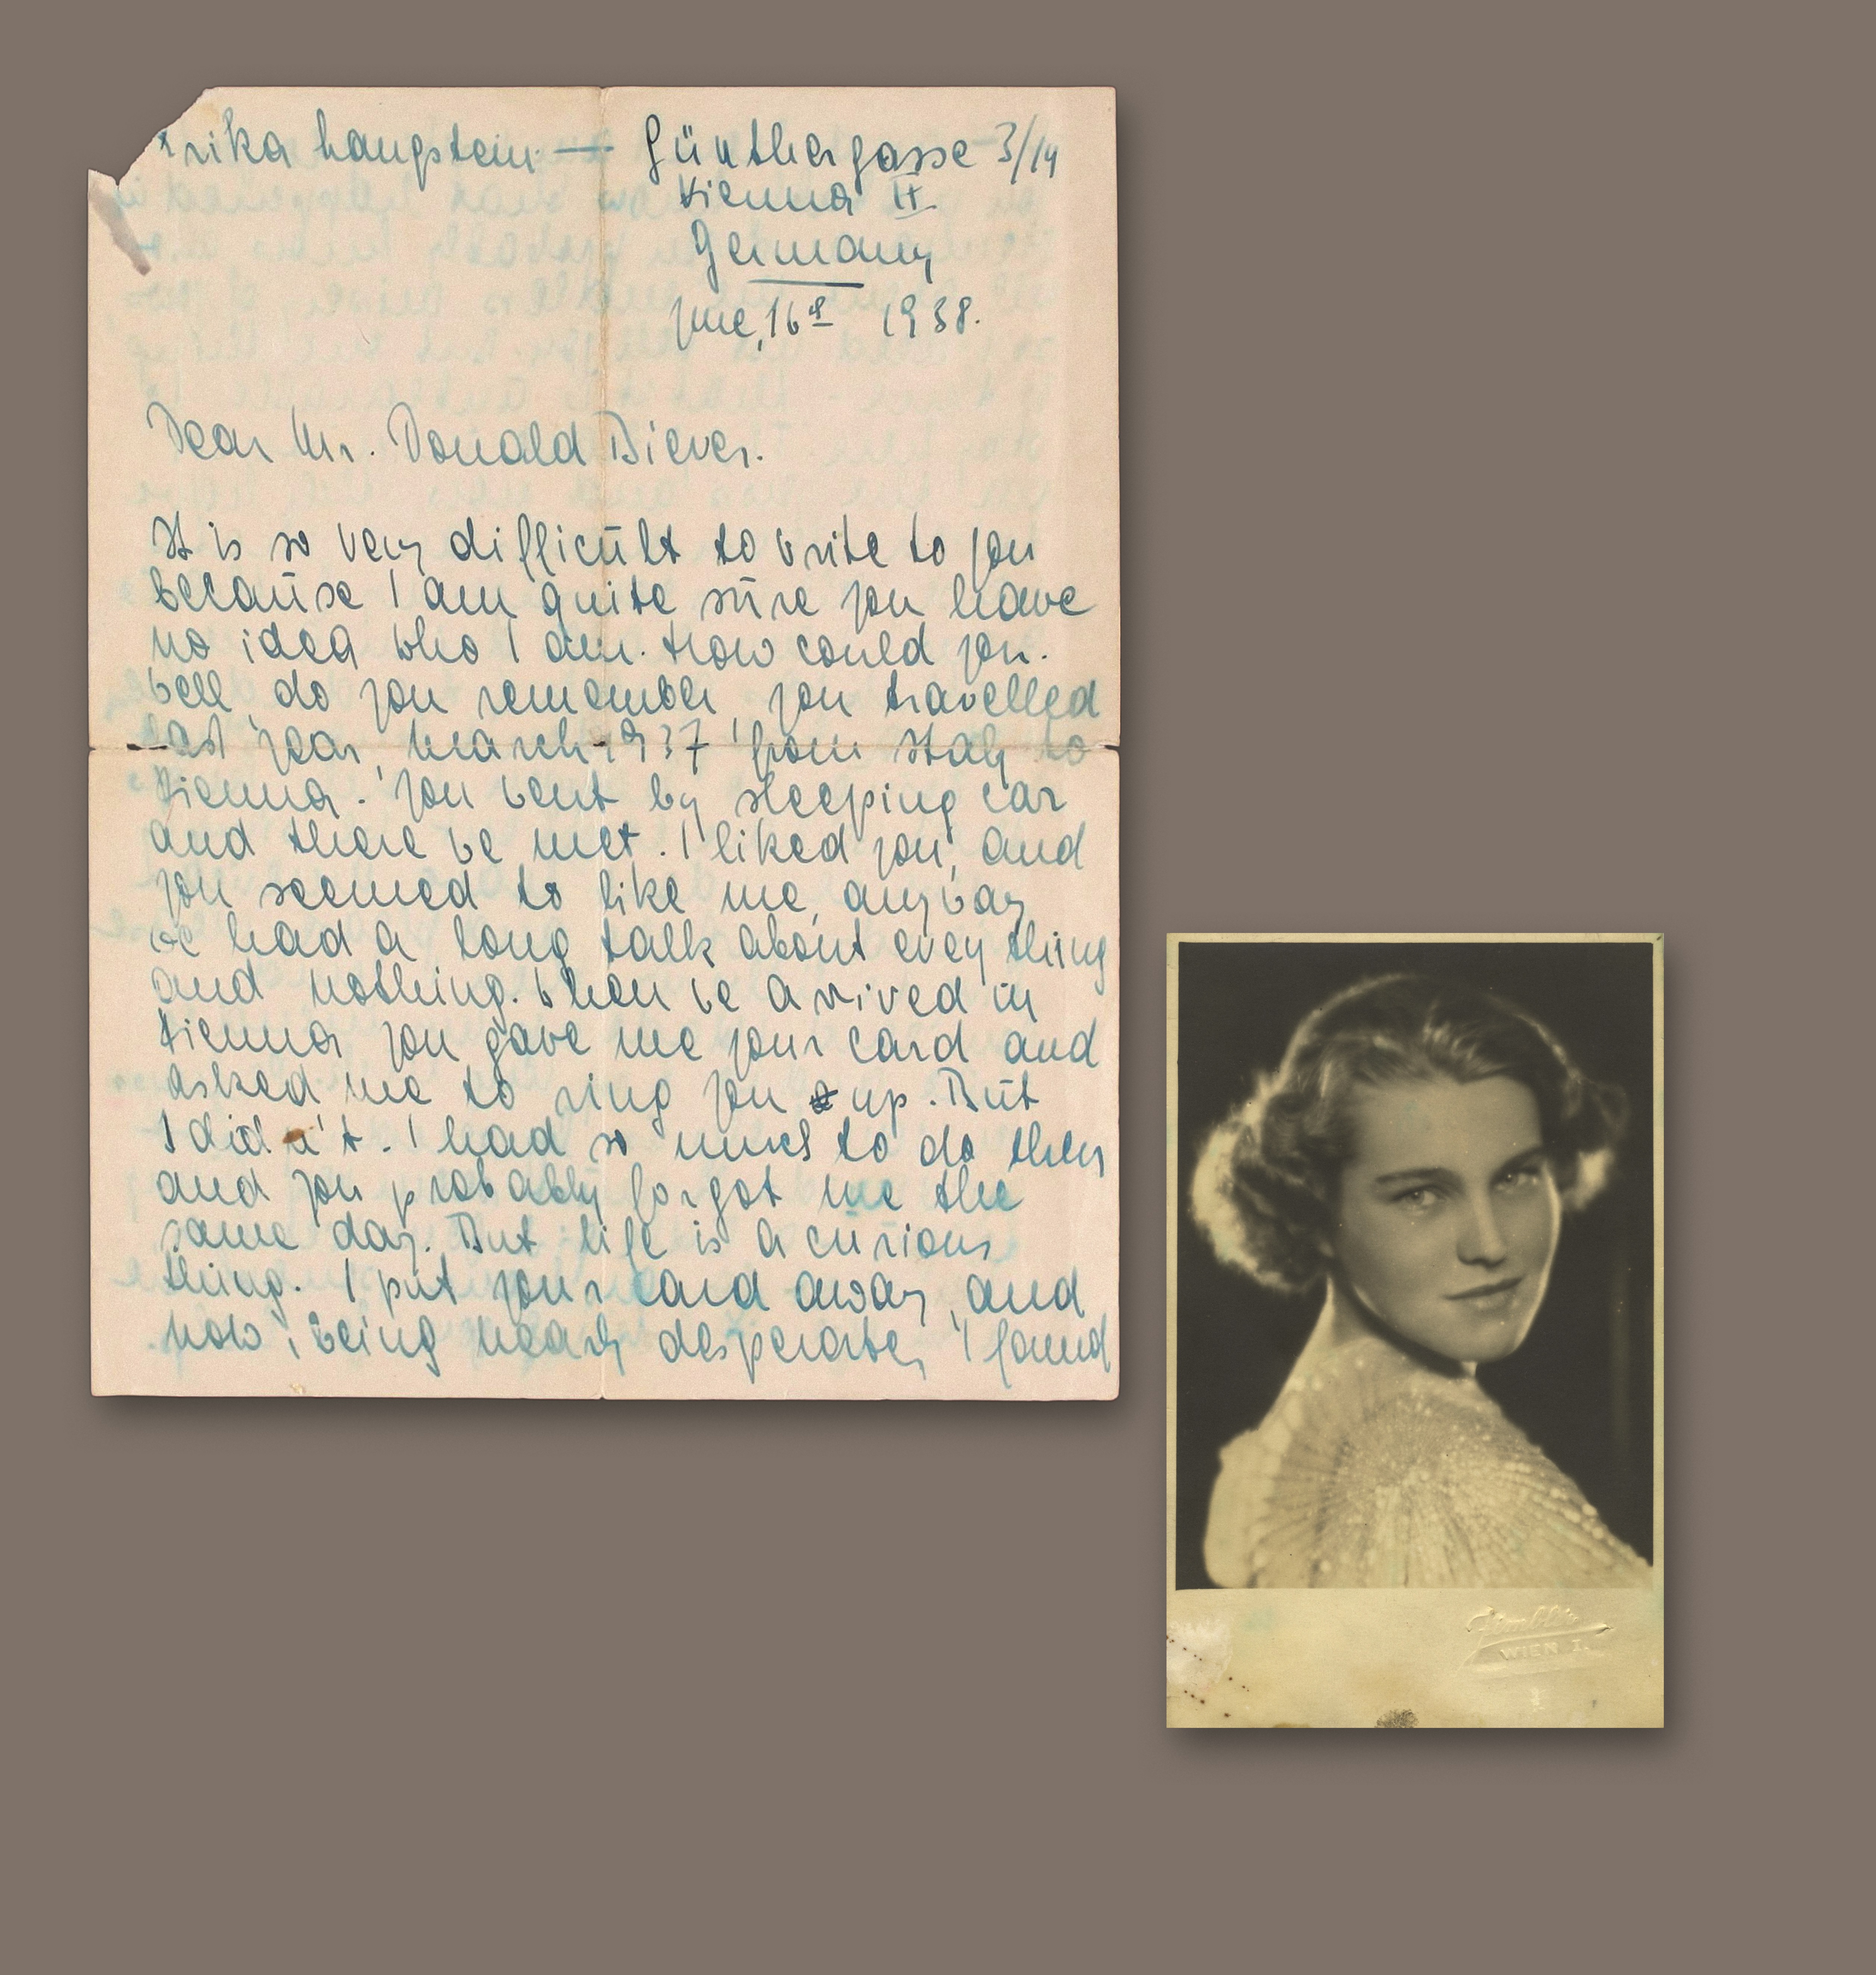 rika Langstein — Günthergasse 3/14
Vienna IX.
Germany
June, 16th 1938.
Dear Mr. Donald Biever.
It is so very difficult to write to you
because I am quite sure you have
no idea who I am. How could you.
Well, do you remember, you travelled
last year, March 1937 from Italy to
Vienna. You went by sleeping car
and there we met. I liked you, and
you seemed to like me, anyway
we had a long talk about every thing
and nothing. When we arrived in
Vienna you gave me your card and
asked me to ring you up. But
I did n't. I had so much to do then
and you probably forgot me the
same day. But life is a curious
thing. I put your card away, and
now, being nearly desperate, I found
WIEN, I.